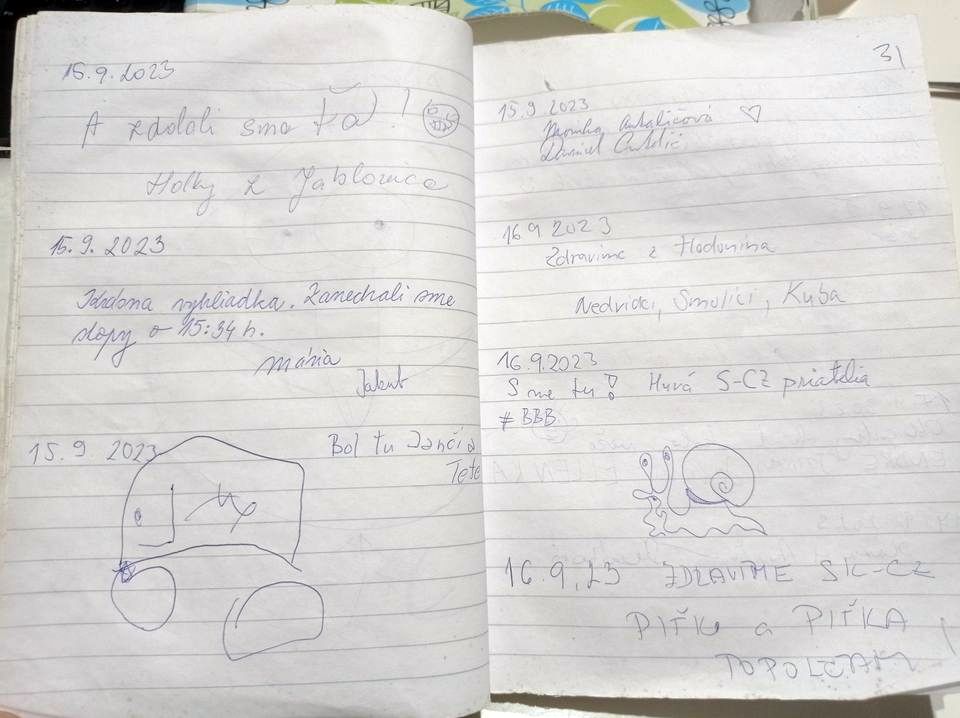 15.9.2023
A zdolali sme ťa!
Holky z Jablonica
15.9.2023
Krásna vyhliadka. Zanechali sme
stopy o 15:34 h.
Mária
Jakub
15.9. 2023
Bol tu Janči a
Tete
31
15.9 2023
Antaličová
Daniel Antalič
16.9 2023
Zdravíme z Hodonína
Smolíci, Kuba
16.9.2023
Sme tu! Hurá S-CZ priatelia
#BBB
16.9.23 ZDRAVÍME SK-CZ
PIŤKU a PIŤKA